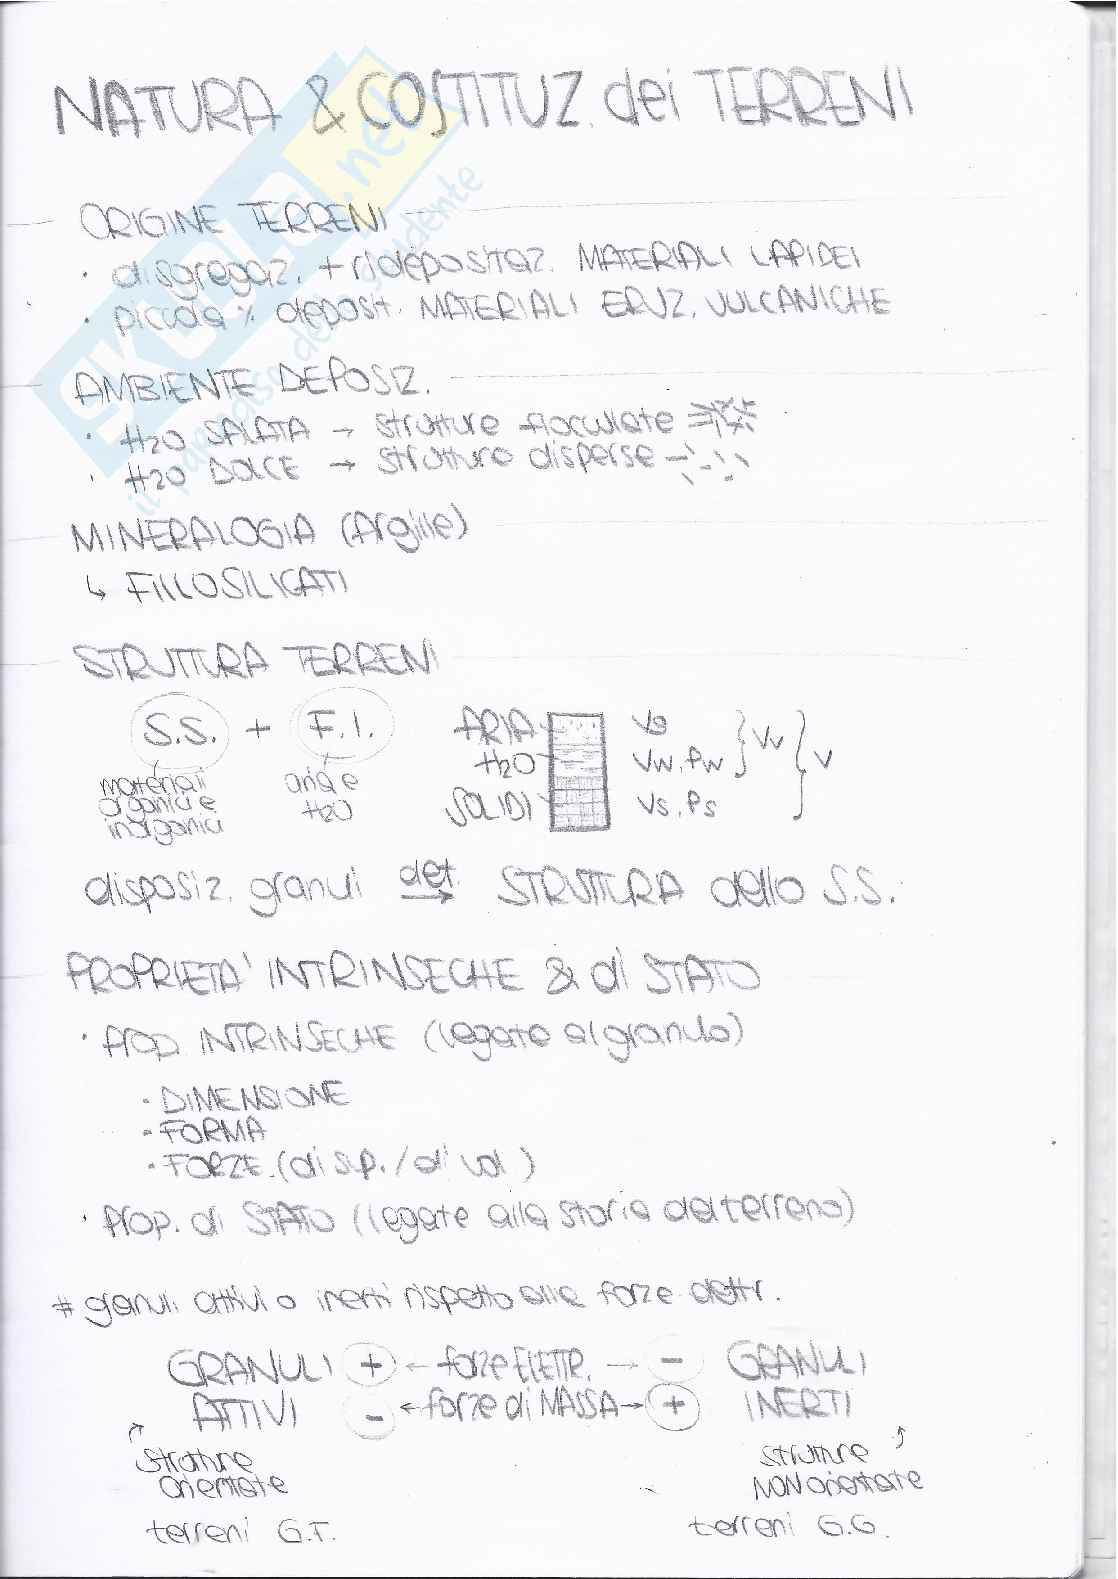 NATURA & COSTITUZ. dei TERRENI
ORIGINE TERRENI
· disgregaz. + rideposítaz. MATERIALI LAPIDEI
· piccola % deposit. MATERIALI ERUZ. VULCANICHE
AMBIENTE DEPOSIZ.
· H2O SALATA → strutture flocculate
· H2O DOLCE → strutture disperse
MINERALOGIA (Argille)
↳ FILLOSILICATI
STRUTTURA TERRENI
S.S. + F.I.
materiali organici e inorganici
aria e H2O
ARIA Vg
H2O Vw, Pw } Vv } V
SOLIDI Vs, Ps
disposiz. granuli det. → STRUTTURA dello S.S.
PROPRIETA' INTRINSECHE & di STATO
· Prop. INTRINSECHE (legate al granulo)
· DIMENSIONE
· FORMA
· FORZE (di sup. / di vol)
· Prop. di STATO (legate alla storia del terreno)
# granuli attivi o inerti rispetto alle forze elettr.
GRANULI + ← forze ELETTR. → - GRANULI
ATTIVI - ← forze di MASSA → + INERTI
strutture orientate
strutture NON orientate
terreni G.F.
terreni G.G.
SKUOLA.net
il paradiso dello studente